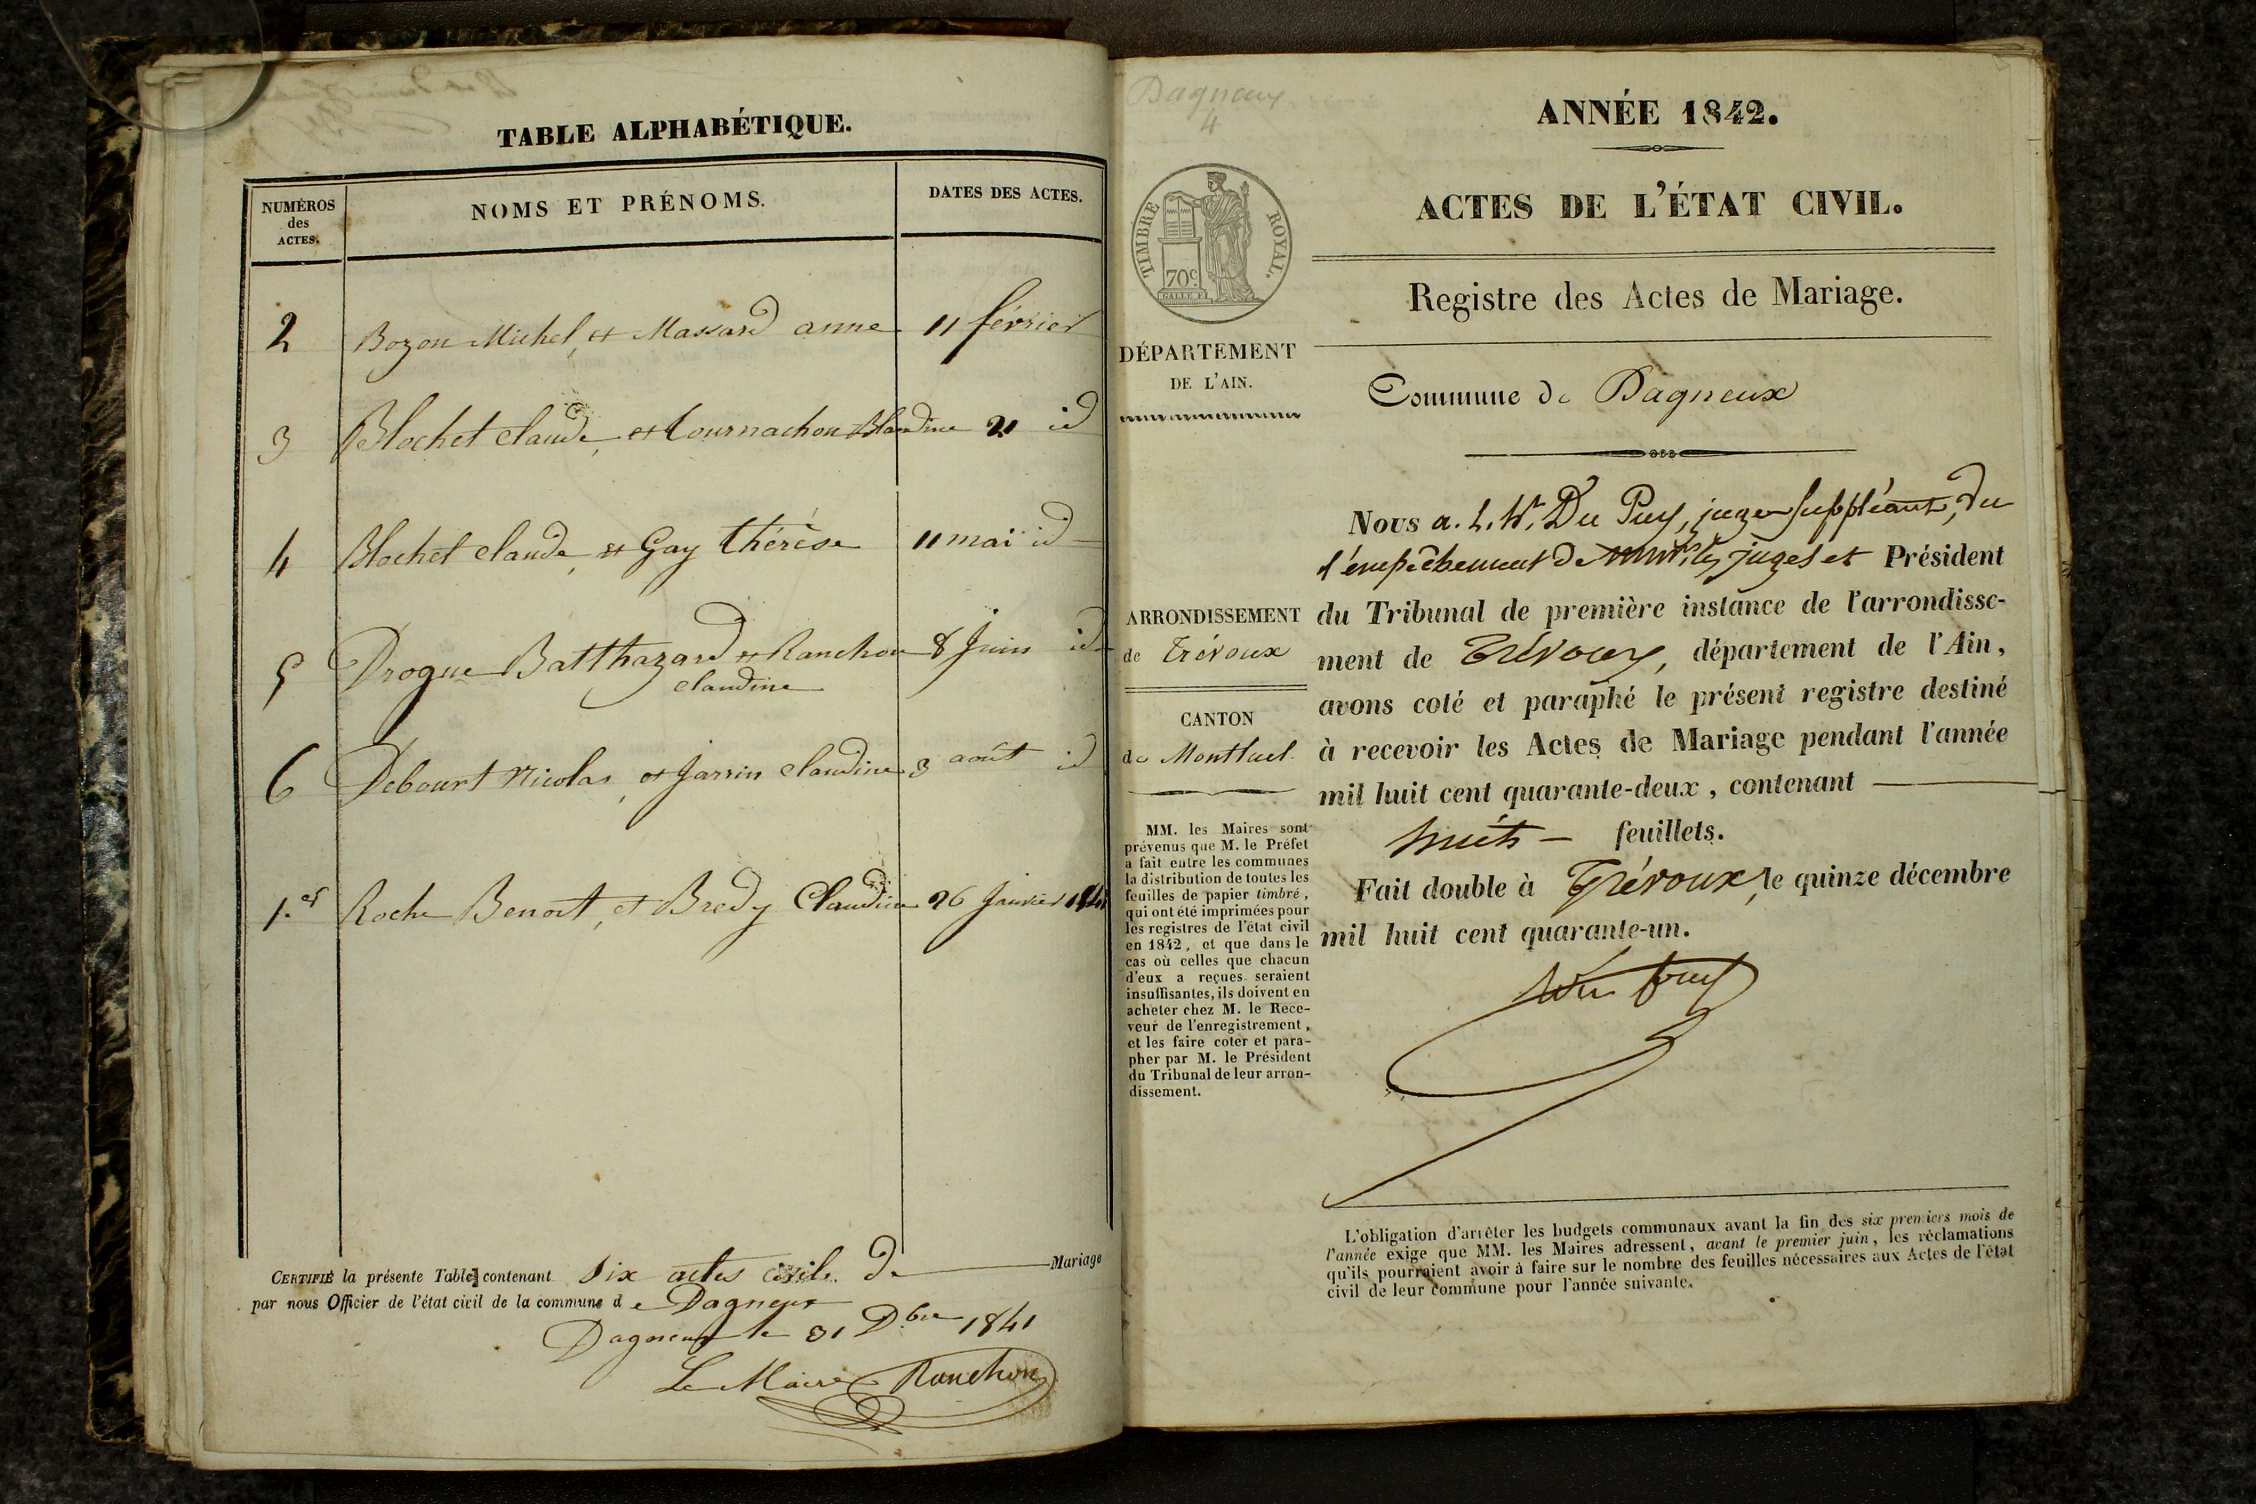 TABLE ALPHABÉTIQUE.
NUMÉROS
des
ACTES.
NOMS ET PRÉNOMS.
DATES DES ACTES.
2 Bozon Michel, et Massard anne 11 février
3 Blochet claude, et Tournachon Blandine 21 id
4 Blochet claude, et Gay thérèse 11 mai id
5 Drogue Batthazard et Ranchon 8 Juin id
claudine
6 Debourt Nicolas, et Jarrin claudine 3 août id
1.er Roche Benoit, et Bredy Claudine 26 Janvier 1841
CERTIFIÉ la présente Table contenant six actes civils de Mariage
par nous Officier de l'état civil de la commune de Dagneux
Dagneux le 31 Dbre 1841
Le Maire Ranchon
Dagneux
4
TIMBRE ROYAL.
70c.
ANNÉE 1842.
ACTES DE L'ÉTAT CIVIL.
Registre des Actes de Mariage.
DÉPARTEMENT
DE L'AIN.
Commune de Dagneux
ARRONDISSEMENT
de Trévoux
CANTON
de Montluel
MM. les Maires sont
prévenus que M. le Préfet
a fait entre les communes
la distribution de toutes les
feuilles de papier timbré,
qui ont été imprimées pour
les registres de l'état civil
en 1842, et que dans le
cas où celles que chacun
d'eux a reçues seraient
insuffisantes, ils doivent en
acheter chez M. le Rece-
veur de l'enregistrement,
et les faire coter et para-
pher par M. le Président
du Tribunal de leur arron-
dissement.
Nous a. L. Du Puy, juge suppléant, du
l'empêchement de les juges et Président
du Tribunal de première instance de l'arrondisse-
ment de Trévoux, département de l'Ain,
avons coté et paraphé le présent registre destiné
à recevoir les Actes de Mariage pendant l'année
mil huit cent quarante-deux, contenant
huit feuillets.
Fait double à Trévoux, le quinze décembre
mil huit cent quarante-un.
Du Puy
L'obligation d'arrêter les budgets communaux avant la fin des six premiers mois de
l'année exige que MM. les Maires adressent, avant le premier juin, les réclamations
qu'ils pourraient avoir à faire sur le nombre des feuilles nécessaires aux Actes de l'état
civil de leur commune pour l'année suivante.